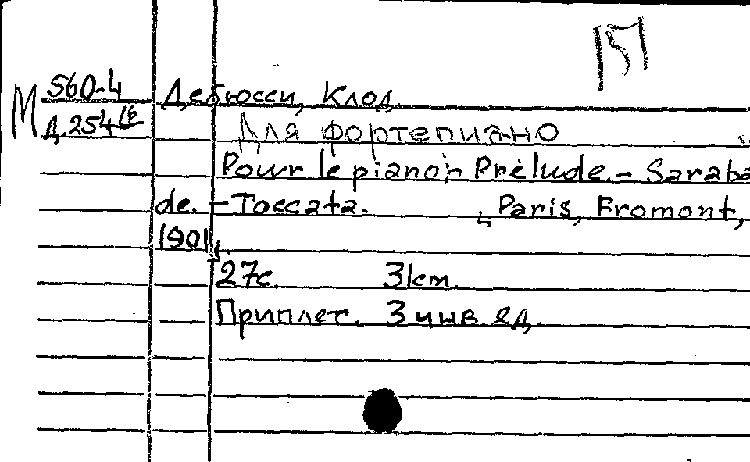 151
М 560-4
Д 254
Дебюсси, Клод.
Для фортепиано
Pour le piano: Prélude. – Saraba
de. – Toccata. Paris, Fromont,
1901.
27с. 31cm.
Приплет. 3 инв. ед.